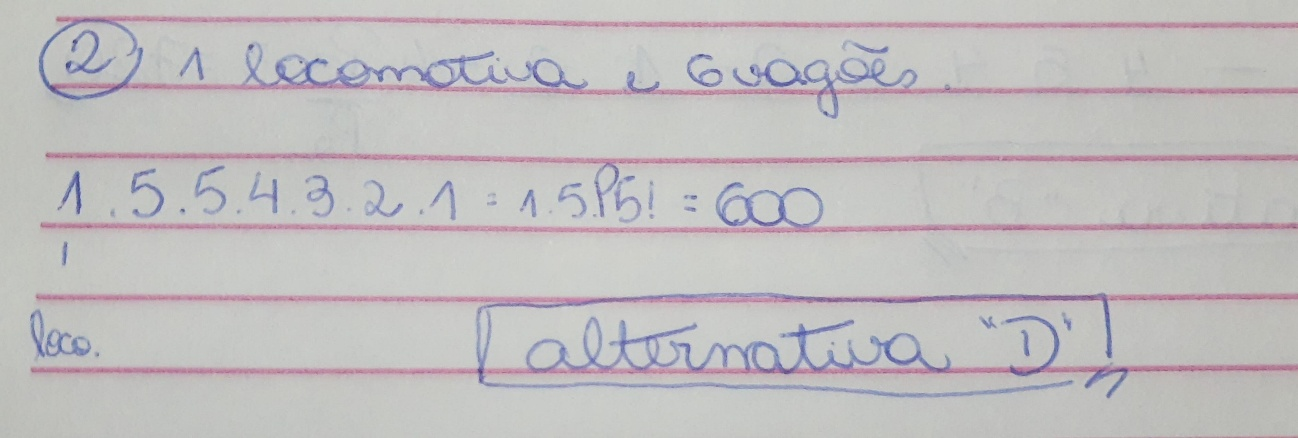 2) 1 locomotiva e 6 vagões.
1.5.5.4.3.2.1 = 1.5.P5! = 600
loco.
alternativa "D"